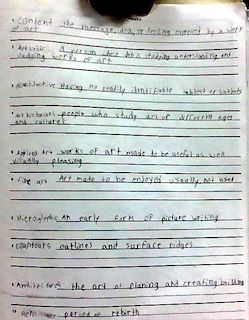 • Content the message, idea, or feeling expressed by a work
of art
• Art critic A person whose job is studying, understanding, and
judging works of art
Having no readily identifiable subject or subjects
• Art historians people who study art of different ages
and cultures
• Applied Art works of art made to be useful as well
visually pleasing
• Fine art Art made to be enjoyed usually, not used
• Hieroglyphic An early form of picture writing
• contours outlines and surface ridges
• Architecture the art of planing and creating building
• period of rebirth